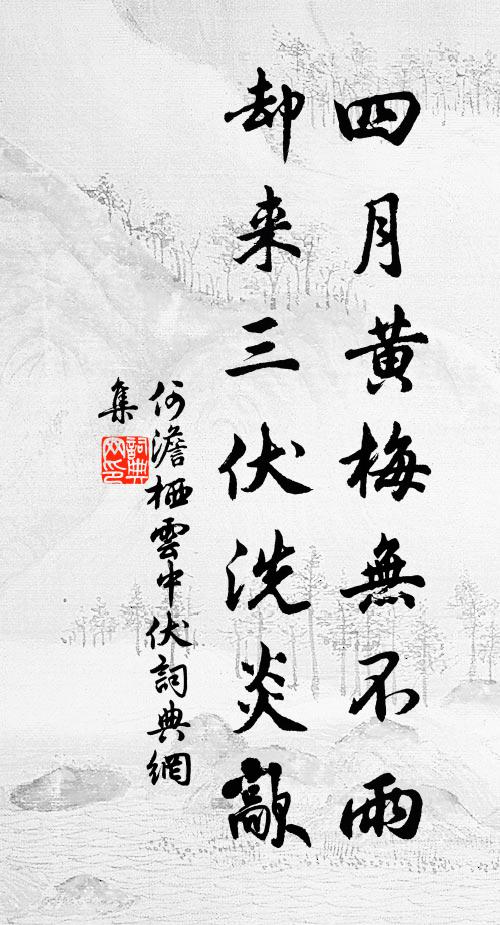 四月黄梅無不雨
却来三伏洗炎歊
何澹栖雲中伏詞典網
集
詞典
网印